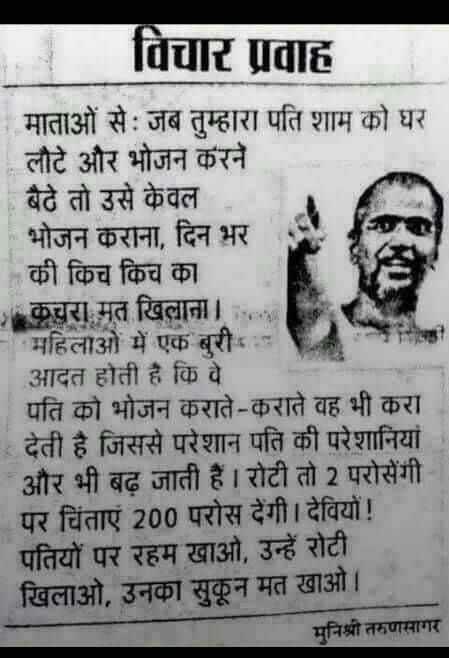 विचार प्रवाह
माताओं से : जब तुम्हारा पति शाम को घर
लौटे और भोजन करने
बैठे तो उसे केवल
भोजन कराना, दिन भर
की किच किच का
कचरा मत खिलाना।
महिलाओं में एक बुरी
आदत होती है कि वे
पति को भोजन कराते-कराते वह भी करा
देती है जिससे परेशान पति की परेशानियां
और भी बढ़ जाती हैं। रोटी तो 2 परोसेंगी
पर चिंताएं 200 परोस देंगी। देवियों!
पतियों पर रहम खाओ, उन्हें रोटी
खिलाओ, उनका सुकून मत खाओ।
मुनिश्री तरुणसागर